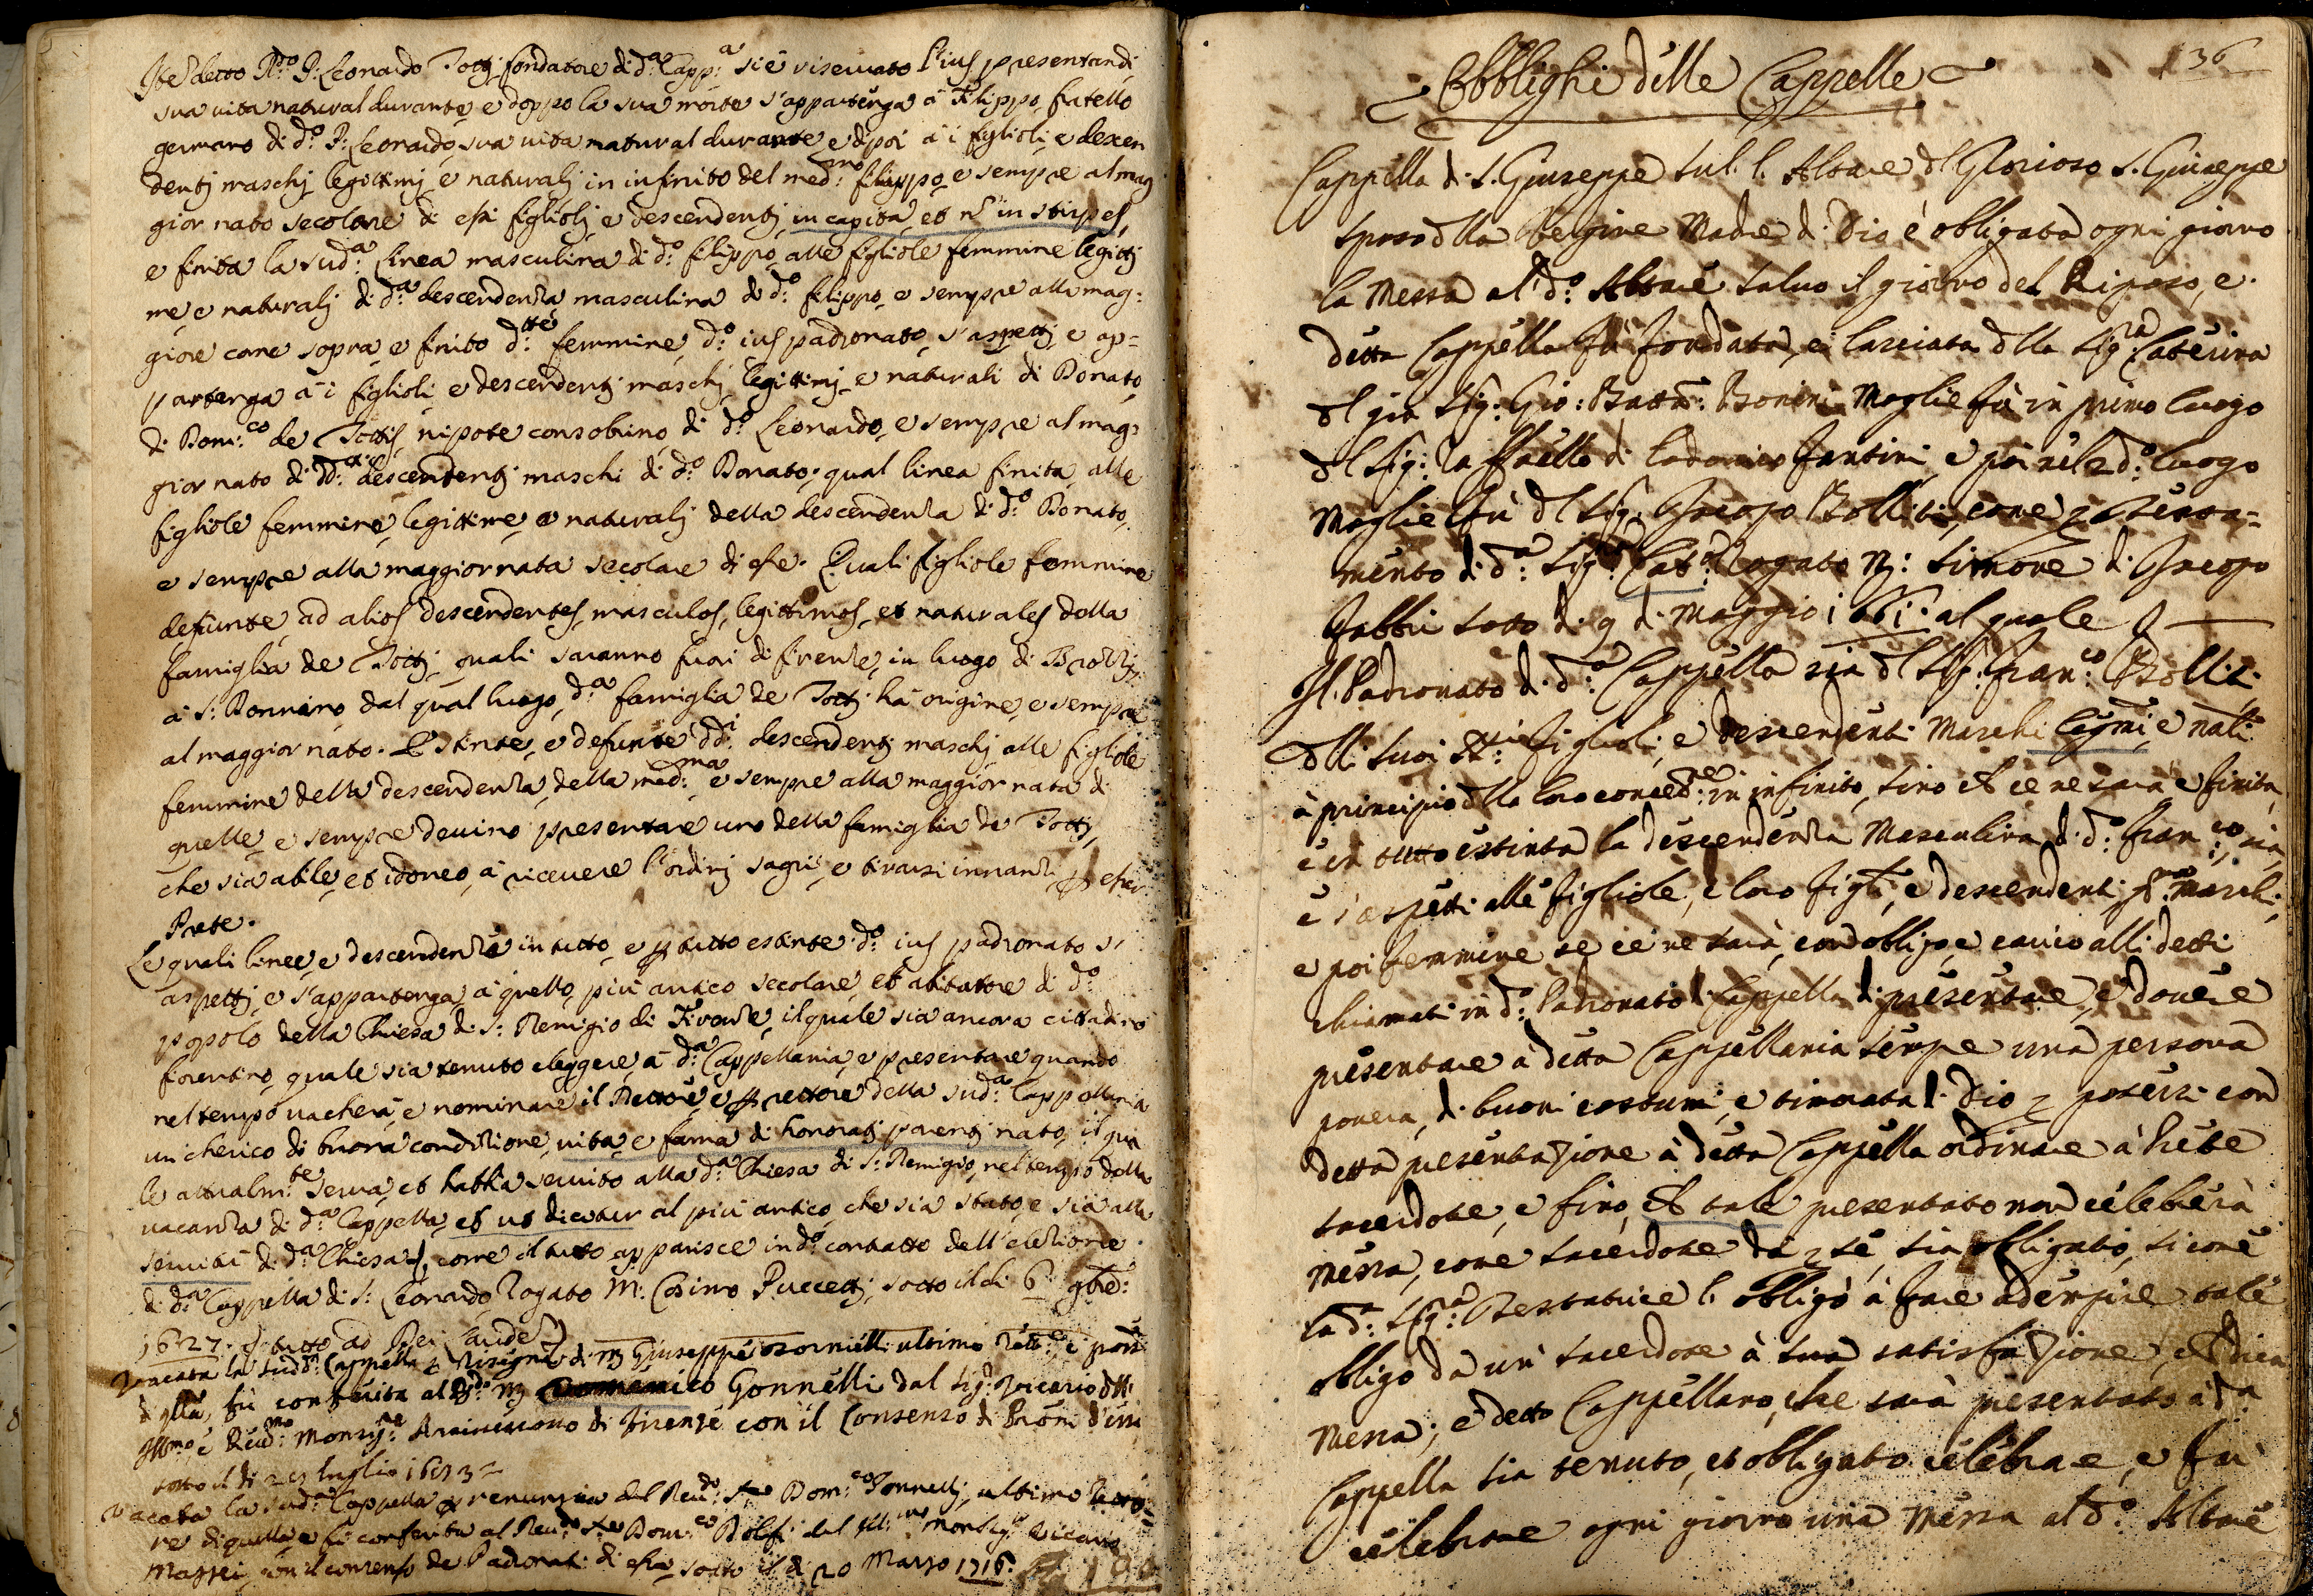 Ite detto R.do P: Leonardo Totti fondatore di d.a Capp.a si è riservato l'ius presentandi
sua vita natural durante, e doppo la sua morte s'appartenga à Filippo fratello
germano di d.o P: Leonardo, sua vita natural durante, e dipoi à i figlioli, e descen
denti maschj legittimj e naturalj in infinito del med.mo filippo, e sempre al mag
gior nato secolare di essi figliolj e descendentj in capita, et nō in stirpes,
e finita la sud.a linea masculina di d.o filippo, alle figliole femmine legitti
me, e naturalj di d.a descendenza masculina di d.o filippo, e sempre alla mag=
giore come sopra, e finito d.tte femmine, d.o ius padronato, s'aspettj e ap=
partenga à i figlioli e descendentj maschj legittimj e naturali di Donato
di Dom.co de Tottis nipote consobrino di d.o Leonardo, e sempre al mag=
gior nato di dd.i descendentj maschi di d.o Donato; qual linea finita, alle
figliole femmine, legittime, e naturalj della descendenza di d.o Donato,
e sempre alla maggior nata secolare di esse. Quali figliole femmine
defunte, ad alios descendentes, masculos, legittimos, et naturales della
famiglia de Tottj quali saranno fuori di firenze, in luogo di Brozzi,
à S: Donnino dal qual luogo, d.a famiglia de Tottj hà origine, e sempre
al maggior nato. Estinte, e defunte dd.i descendentj maschj alle figliole
femmine della descendenza della med.ma e sempre alla maggior nata di
quelle, e sempre devino presentare uno della famiglia de Totti,
che sia abile, et idoneo, à ricevere l'ordinj sagri, e tirarsi innanzi p esser
Prete.
Le quali linee, e descendenze in tutto, e p tutto estinte d.o ius padronato s'
aspettj e s'appartenga, à quello più antico secolare, et abitatore di d.o
popolo della Chiesa di S: Remigio di Firenze, il quale sia ancora cittadino
fiorentino, quale sia tenuto eleggere, à d.a Cappellania, e presentare quando
nel tempo vacherà, e nominare il Rettore, e p rettore della sud.a Cappellania
un cherico di buona condizione, vita, e fama di honoratj parentj nato, il qua
le attualm.te serva, et habbia servito alla d.a Chiesa di S: Remigio, nel tempo della
vacanza di d.a Cappella, et ut dicitur al più antico, che sia stato, e sia alla
servitù di d.a Chiesa, come il tutto apparisce in d.o contratto dell'elezione
di d.a Cappella di S: Leonardo Rogato M: Cosimo Puccettj, sotto il di 6 9bre:
1627. il tutto ad Dei Laude.
Vacata la sud.a Cappella p Risegna di M Giuseppe ultimo Rett.e, e poss.
di q.lla, fù conferita al R.do M Domenico Gonnelli dal Sig.r Vicario dll'
Ill.mo e Rev.mo Monsig.re Arcivescovo di Firenze con il Consenso de Pròni d'essa
sotto il di luglio 1693
Vacata la sud.a Cappella p renunzia del Rev.do Dom.co Gonnellj, ultimo Retto=
re di quella, e fù conferita al Rev.do Dom.co dal Ill.mo Monsig.r Vicario
Maffei, con il consenso de Padronati di essa, sotto il di 20 Marzo 1716.
36
Obblighi delle Cappelle
Cappella di S. Giuseppe sul l'Altare dl Glorioso S. Giuseppe
sposo dlla Vergine Madre di Dio è obligata ogni giorno
la Messa al d.o Altare salvo il giorno del Riposo, e
detta Cappella fù fondata, e lasciata dlla Sig.ra Caterina
dl già Sig: Gio: Batta: Bonini Moglie fù in primo luogo
dl Sig: Raffaello di Lodovico Fantini, e poi nel 2do luogo
Moglie fù dl Sig. Jacopo Bolliti, come p testa=
mento di d.a Sig.a Cat.a Rogato M: Simone di Jacopo
Fabbri sotto di 9 di Maggio 1661. al quale
Il Padronato di d.a Cappella sia dl Sig. Fran.co Bolliti
dlli suoi figlioli, e descendenti Maschi legmi, e nali
à principio dlla loro in infinito, sino ch ce ne sarà, e finita,
e in tutto estinta la descendenza Masculina di d.o Fran.co, sia,
e s'aspetti alle figliole, e loro figli, e descendenti p.ma Maschi,
e poi femmine se ce ne sarà, con obligo, e carico alli detti
chiamati in d.o Padronato di Cappella di presentare, e dovere
presentare à detta Cappellania sempre una persona
povera, di buoni costumi, e timorata di Dio p potersi con
detta presentazione à detta Cappella ordinare à Prete
sacerdote, e fino, ch tale presentato non celebrerà
messa, come sacerdote da p se, sia obligato, si come
la d.a Sig.a Testatrice li obligò à fare adempire tale
obligo da un' sacerdote à sua satisfazione, ch dica
Messa; e detto Cappellano, che sarà presentato à d.a
Cappella sia tenuto, et obligato celebrare, e far
celebrare ogni giorno una Messa al d.o Altare